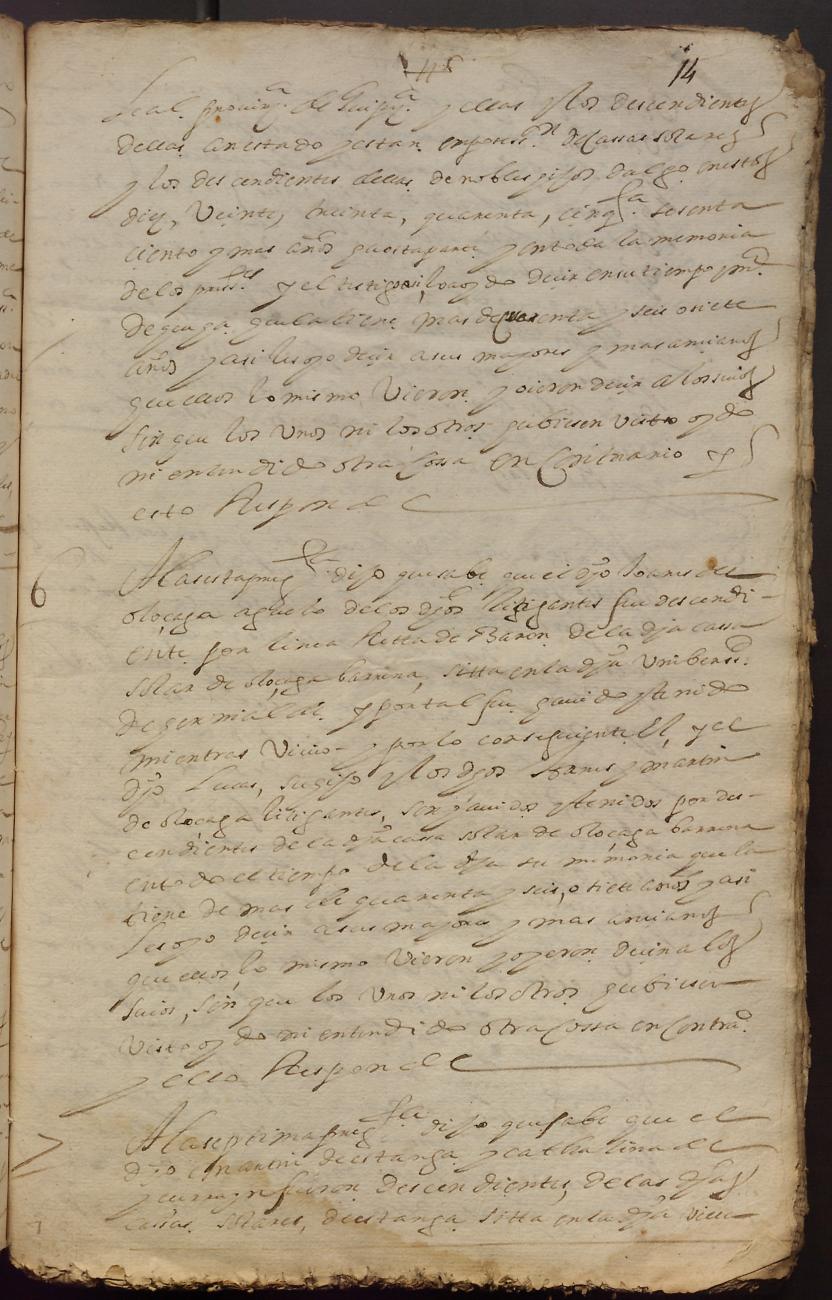 14
Leal provinᵃ de Guipᵃ y ellas y los descendientes
dellas an estado y estan en posesⁿ de cassas solares
y los descendientes dellas de nobles hijos dalgo en estos
diez, Veinte, treinta, quarenta, cinqᵗᵃ sesenta
ciento y mas años y en toda la memoria
de los y el testigo asi lo a oydo decir en su tiempo
que la tiene mas de quarenta y seis o siete
años y asi les oyo decir a sus mayores y mas ancianos
que ellos lo mismo Vieron y oieron decir a los suios
sin que los Unos ni los otros hubiesen visto oydo
ni entendido otra cossa en Contrario y
esto Responde
6
A la sesta pregᵗᵃ dijo que sabe que el dho Joanes de
oloçaga aguelo de los dhos litigantes fue descendi-
ente por linea Retta de Baron de la dha cassa
solar de oloçaga barrena, sitta en la dha Unibersᵈ
de y por tal fue hauido y tenido
mientras Viuio y por lo consiguiente el, y el
dho Lucas, su hijo y los dhos Joanes y martin
de oloçaga litigantes, son hauidos y tenidos por des-
cendientes de la dha cassa solar de oloçaga barrena
en todo el tiempo de la dha su memoria que la
tiene de mas de quarenta y seis, o siete años y asi
les oyo decir a sus mayores y mas ancianos
que ellos, lo mismo Vieron y oyeron decir a los
suios, sin que los Unos ni los otros hubiesen
Visto oydo ni entendido otra cossa en Contraᵒ
y esto Responde
7
A la septima pregᵗᵃ dijo que sabe que el
dho martin de estanga y cathalina de
fueron descendientes de las dhas
cassas solares, de estanga sitta en la dha Villa